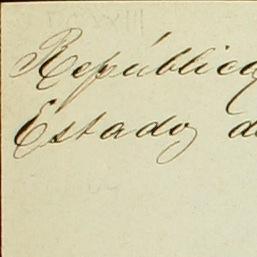 República
Estado d